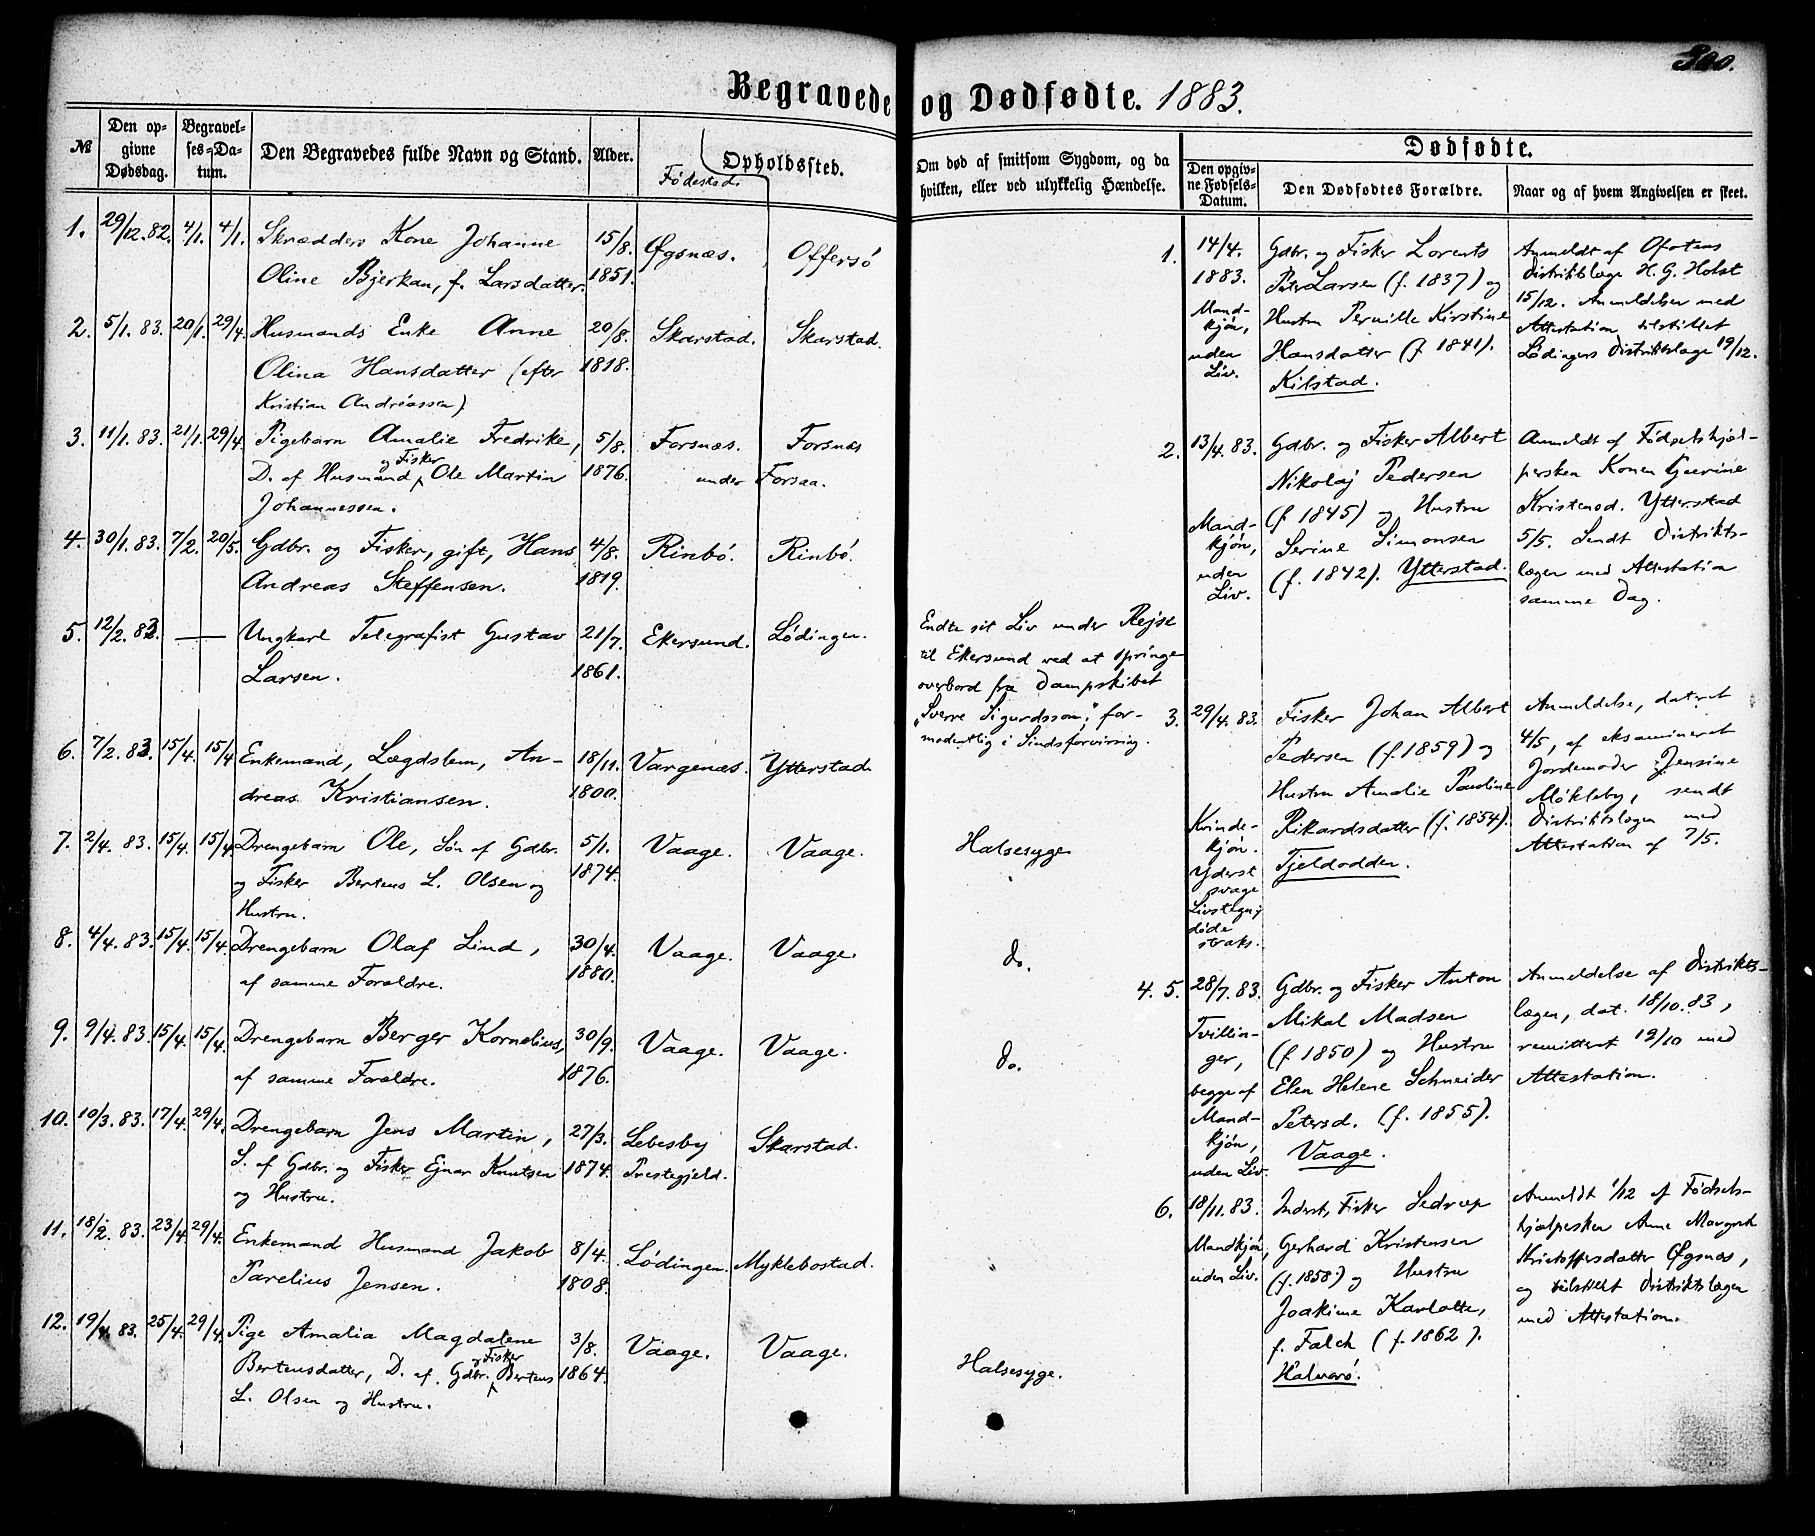 300.
Begravede og Dødfødte. 1883.
№
Den opgivne Dødsdag.
Begravelses-Datum.
Den Begravedes fulde Navn og Stand.
Alder.
Fødested.
Opholdssted.
Om død af smitsom Sygdom, og da hvilken, eller ved ulykkelig Hændelse.
Dødfødte.
Den opgivne Fødsels-Datum.
Den Dødfødtes Forældre.
Naar og af hvem Angivelsen er skeet.
1. 29/12.82. 4/1. 4/1. Skrædders Kone Johanne 15/8. Øgsnæs. Offersø
Oline Bjerkan, f. Larsdatter. 1851.
2. 5/1.83. 20/1. 29/4. Husmands Enke Anne 20/8. Skarstad. Skarstad.
Olina Hansdatter (efter 1818.
Kristian Andréassen)
3. 11/1.83. 21/1. 29/4. Pigebarn Amalie Fredrike, 5/8. Forsnæs. Forsnæs
D. af Husmand og Fisker Ole Martin 1876. under Forsaa.
Johannessen.
4. 30/1.83. 7/2. 20/5. Gdbr. og Fisker, gift, Hans 4/8. Rinbø. Rinbø.
Andreas Steffensen. 1819.
5. 12/2.83. — Ungkarl Telegrafist Gustav 21/7. Ekersund. Lødingen.
Larsen. 1861.
Endte sit Liv under Rejse
til Ekersund ved at springe
overbord fra Dampskibet
„Sverre Sigurdsson," for-
modentlig i Sindsforvirring.
6. 7/2.83. 15/4. 15/4. Enkemand, Lægdslem, An- 18/11. Vargenæs. Ytterstad.
dreas Kristiansen. 1800.
7. 2/4.83. 15/4. 15/4. Drengebarn Ole, Søn af Gdbr. 5/1. Vaage. Vaage. Halsesyge
og Fisker Bertens L. Olsen og 1874.
Hustru.
8. 4/4.83. 15/4. 15/4. Drengebarn Olaf Lind, 30/4. Vaage. Vaage. do.
af samme Forældre. 1880.
9. 9/4.83. 15/4. 15/4. Drengebarn Berger Kornelius, 30/9. Vaage. Vaage. do.
af samme Forældre. 1876.
10. 10/3.83. 17/4. 29/4. Drengebarn Jens Martin, 27/3. Lebesby Skarstad.
S. af Gdbr. og Fisker Ejnar Knutsen 1874. Prestegjeld.
og Hustru.
11. 18/2.83. 23/4. 29/4. Enkemand Husmand Jakob 8/4. Lødingen. Myklebostad.
Parelius Jensen. 1808.
12. 19/4.83. 25/4. 29/4. Pige Amalia Magdalene 3/8. Vaage. Vaage. Halsesyge.
Bertensdatter, D. af Gdbr. og Fisker Bertens 1864.
L. Olsen og Hustru.
1. 14/4. Gdbr. og Fisker Lorents Anmeldt af Ofotens
1883. Peter Larsen (f. 1837) og Distriktslæge H. G. Holst
Mand- Hustru Pernille Kirstine 15/12. Anmeldelsen med
kjøn, Hansdatter (f. 1841). Attestation tilstillet
uden Kilstad. Lødingens Distriktslæge 19/12.
Liv.
2. 13/4.83. Gdbr. og Fisker Albert Anmeldt af Fødselshjæl-
Nikolaj Pedersen persken Konen Guerine
Mand- (f. 1845) og Hustru Kristensd. Ytterstad
kjøn, Serine Simonsen 5/5. Sendt Distrikts-
uden (f. 1842). Ytterstad. lægen med Attestation
Liv. samme Dag.
3. 29/4.83. Fisker Johan Albert Anmeldelse, dateret
Pedersen (f. 1859) og 4/5, af eksamineret
Hustru Amalie Pauline Jordemoder Jensine
Kvinde- Rikardsdatter (f. 1854). Møkleby, sendt
kjøn. Tjeldodden. Distriktslægen med
Yderst Attestation af 7/5.
svage
Livstegn;
døde
straks.
4. 5. 28/7.83. Gdbr. og Fisker Anton Anmeldelse af Distrikts-
Tvillin- Mikal Madsen lægen, dat. 18/10.83,
ger, (f. 1850) og Hustru remitteret 19/10 med
begge af Elen Helene Schneider Attestation.
Mand- Petersd. (f. 1855).
kjøn, Vaage.
uden Liv.
6. 18/11.83. Inderst, Fisker Sedrup Anmeldt 1/12 af Fødsels-
Mandkjøn, Gerhard Kristensen hjælpersken Anne Margret
uden Liv. (f. 1858) og Hustru Kristoffersdatter Øgsnæs,
Joakime Karlotte, og tilstillet Distriktslægen
f. Falch (f. 1862). med Attestation.
Halvarø.